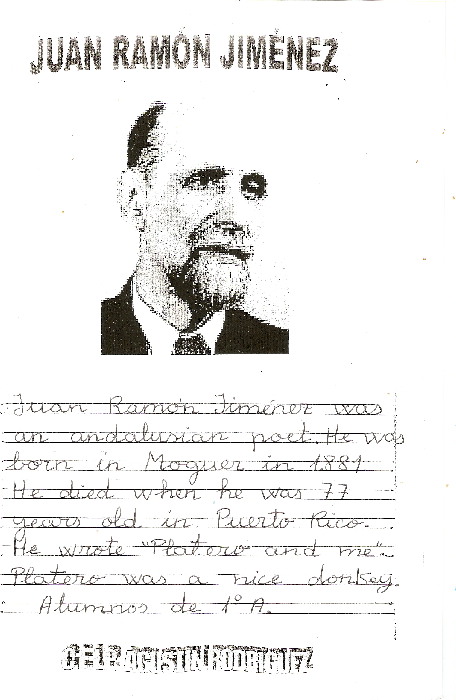 JUAN RAMÓN JIMÉNEZ
Juan Ramón Jiménez was
an andalusian poet. He was
born in Moguer in 1881
He died when he was 77
years old in Puerto Rico.
He wrote "Platero and me".
Platero was a nice donkey.
Alumnos de 1º A.
C.E.I.P. AGUSTIN RODRIGUEZ